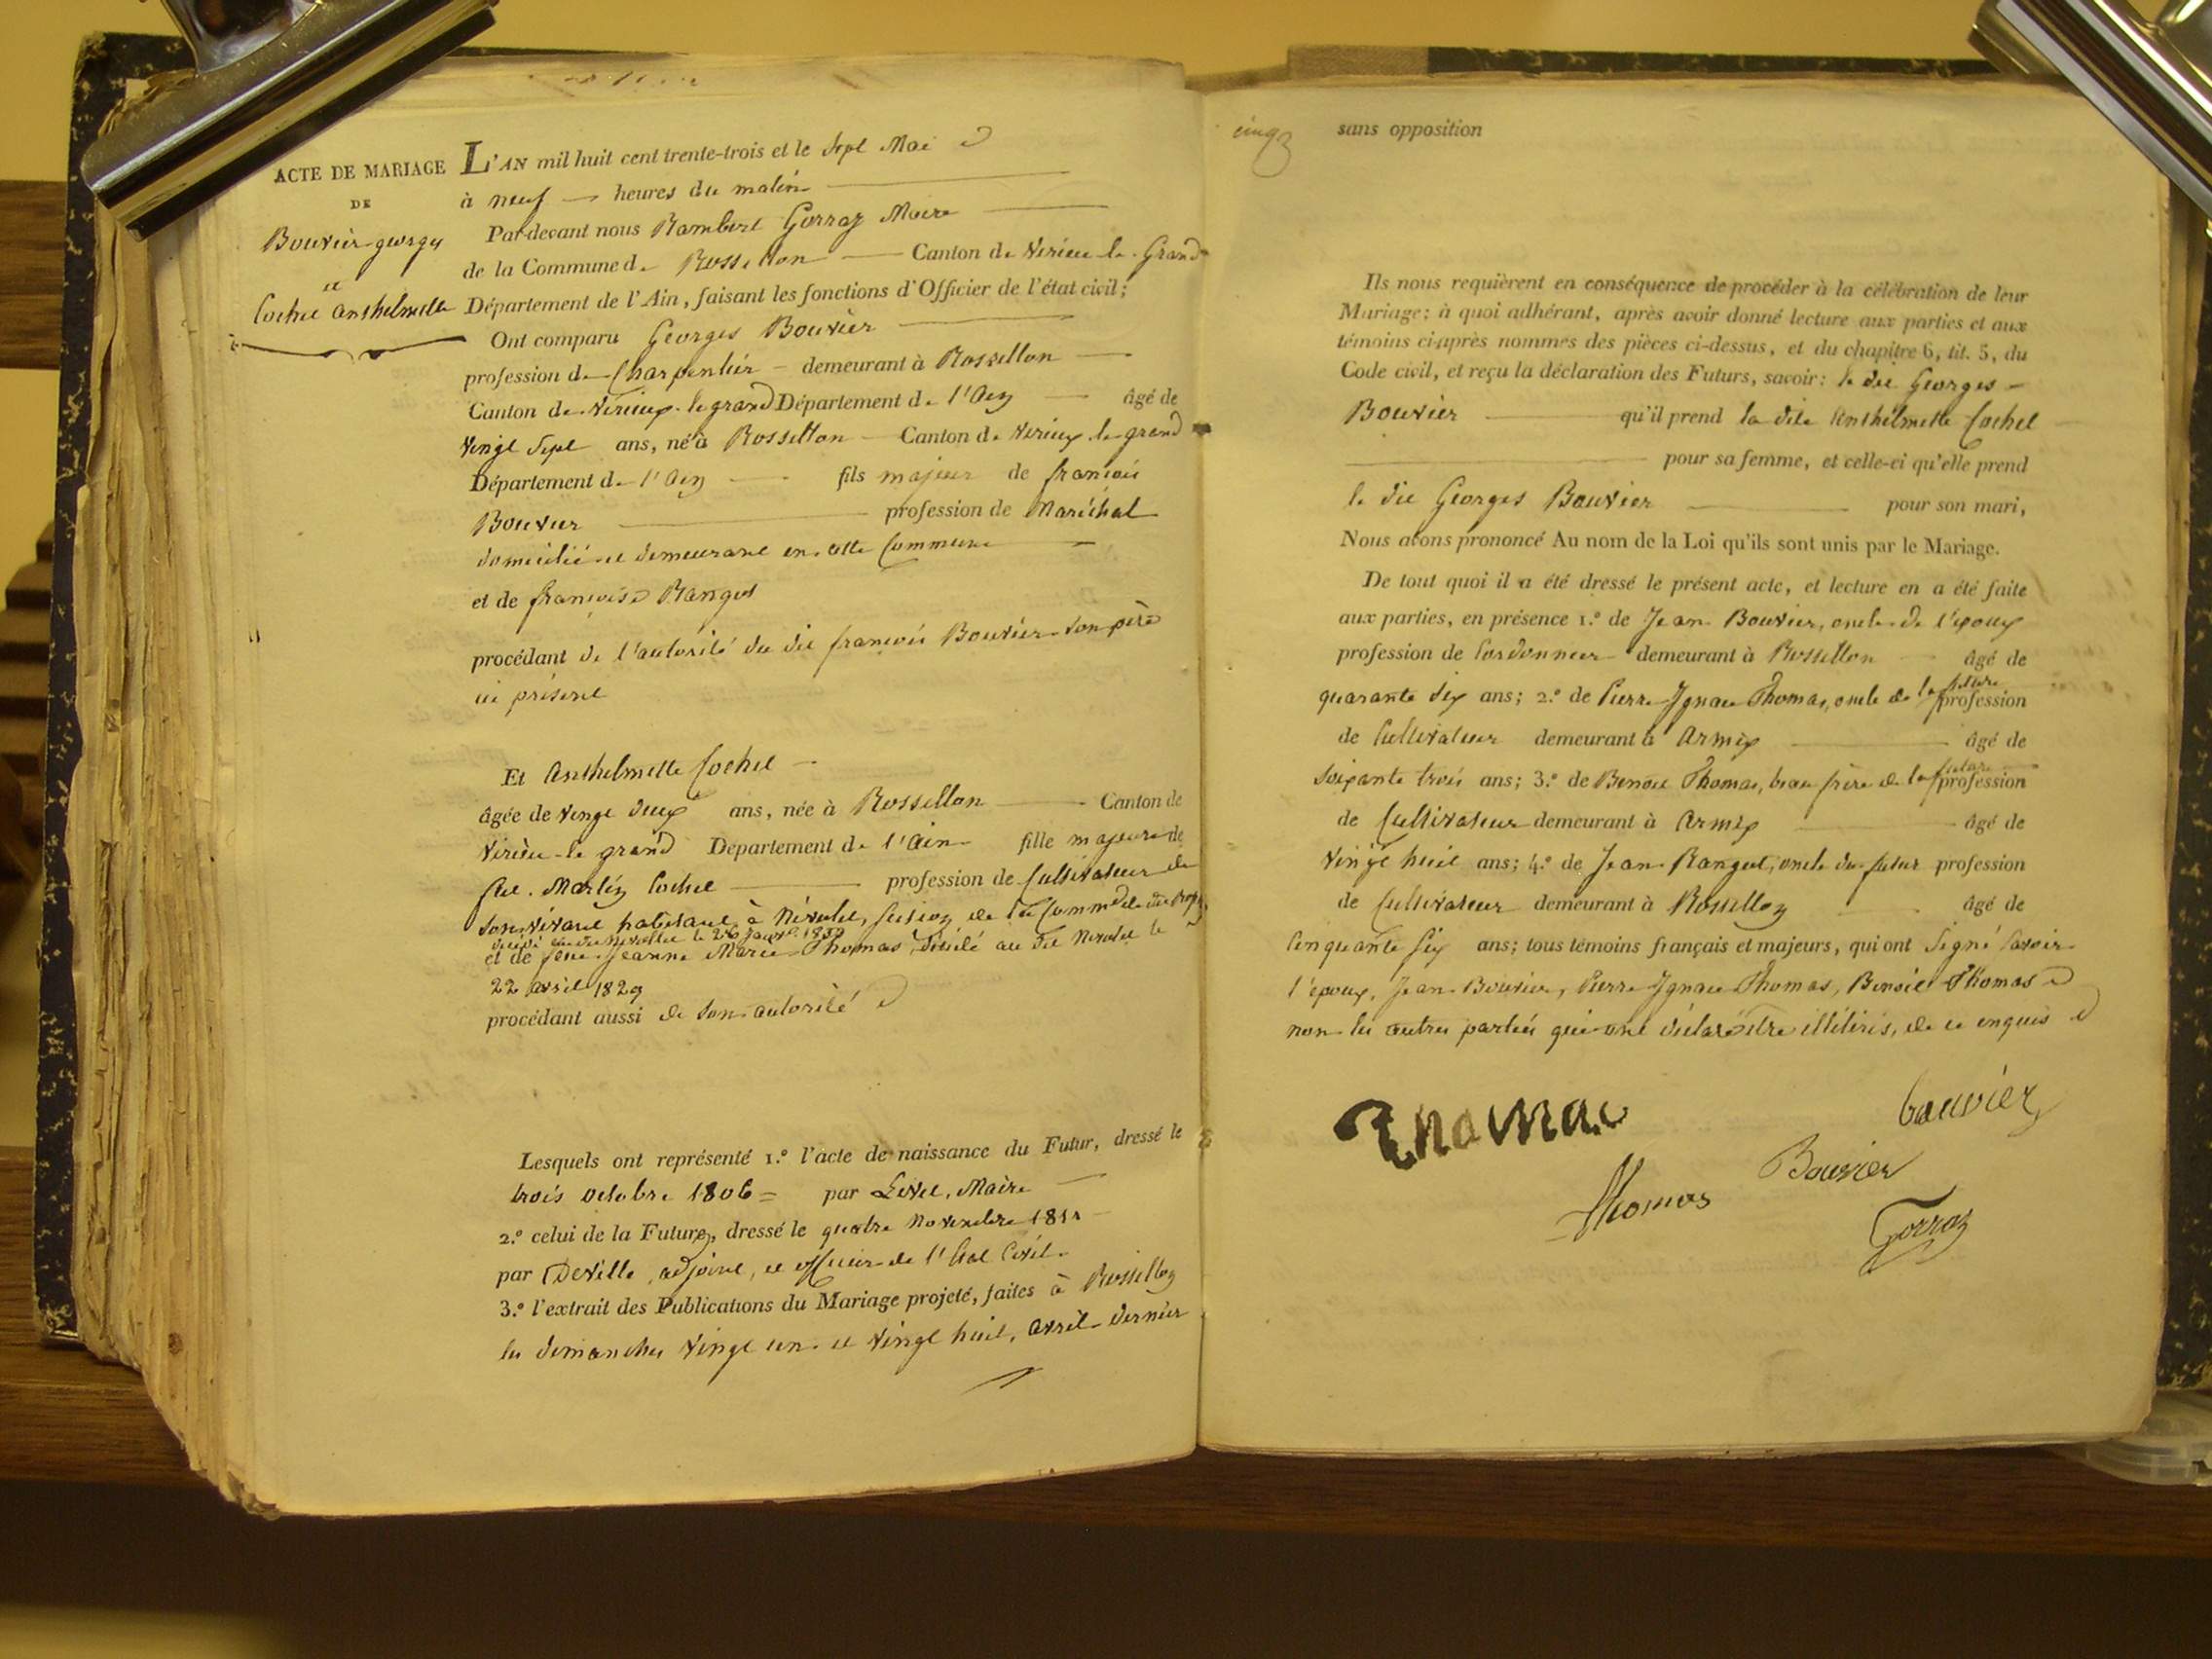 ACTE DE MARIAGE
DE
Bouvier georges
et
Cochet anthelmette
L'AN mil huit cent trente-trois et le Sept Mai
à neuf heures du matin
Par-devant nous Rambert Gorraz Maire
de la Commune de Rossillon Canton de Virieu le Grand
Département de l'Ain, faisant les fonctions d'Officier de l'état civil;
Ont comparu Georges Bouvier
profession de Charpentier demeurant à Rossillon
Canton de Virieux le grand Département de l'Ain âgé de
vingt Sept ans, né à Rossillon Canton de Virieux le grand
Département de l'Ain fils majeur de francois
Bouvier profession de Maréchal
domicilié et demeurant en cette Commune
et de francoise Rangot
procédant de l'autorité du dit francois Bouvier son père
ici présent
Et Anthelmette Cochet
âgée de vingt deux ans, née à Rossillon Canton de
Virieu le grand Département de l'Ain fille majeure de
feu Martin Cochet profession de Cultivateur de
son vivant habitant à Névolet, section de la Comm de du
décédé au dit Nevollet le 26 janv.
et de feue Jeanne Marie Thomas décédé au dit Nevolet le
22 avril 1829
procédant aussi de son autorité
Lesquels ont représenté 1.º l'acte de naissance du Futur, dressé le
trois octobre 1806 = par Livet, Maire
2.º celui de la Future, dressé le quatre Novembre 1811
par Deville adjoint, et officier de l'Etat Civil
3.º l'extrait des Publications du Mariage projeté, faites à Rossillon
les dimanches vingt un et vingt huit, avril dernier
cinq
sans opposition
Ils nous requièrent en conséquence de procéder à la célébration de leur
Mariage: à quoi adhérant, après avoir donné lecture aux parties et aux
témoins ci-après nommés des pièces ci-dessus, et du chapitre 6, tit. 5, du
Code civil, et reçu la déclaration des Futurs, savoir: le dit Georges
Bouvier qu'il prend la dite Anthelmette Cochet
pour sa femme, et celle-ci qu'elle prend
le dit Georges Bouvier pour son mari,
Nous avons prononcé Au nom de la Loi qu'ils sont unis par le Mariage.
De tout quoi il a été dressé le présent acte, et lecture en a été faite
aux parties, en présence 1.º de Jean Bouvier, oncle de l'époux
profession de Cordonnier demeurant à Rossillon âgé de
quarante six ans; 2.º de Pierre Ignace Thomas, oncle de la future profession
de Cultivateur demeurant à Armix âgé de
soixante trois ans; 3.º de Benoit Thomas, beau frère de la future profession
de Cultivateur demeurant à Armix âgé de
vingt huit ans; 4.º de Jean Rangot, oncle du futur profession
de Cultivateur demeurant à Rossillon âgé de
Cinquante six ans; tous témoins français et majeurs, qui ont Signé savoir
l'époux, Jean Bouvier, Pierre Ignace Thomas, Benoit Thomas
non les autres parties qui ont déclaré être illitirés, de ce enquis
Thomas
bouvier
Bouvier
Thomas
Gorraz